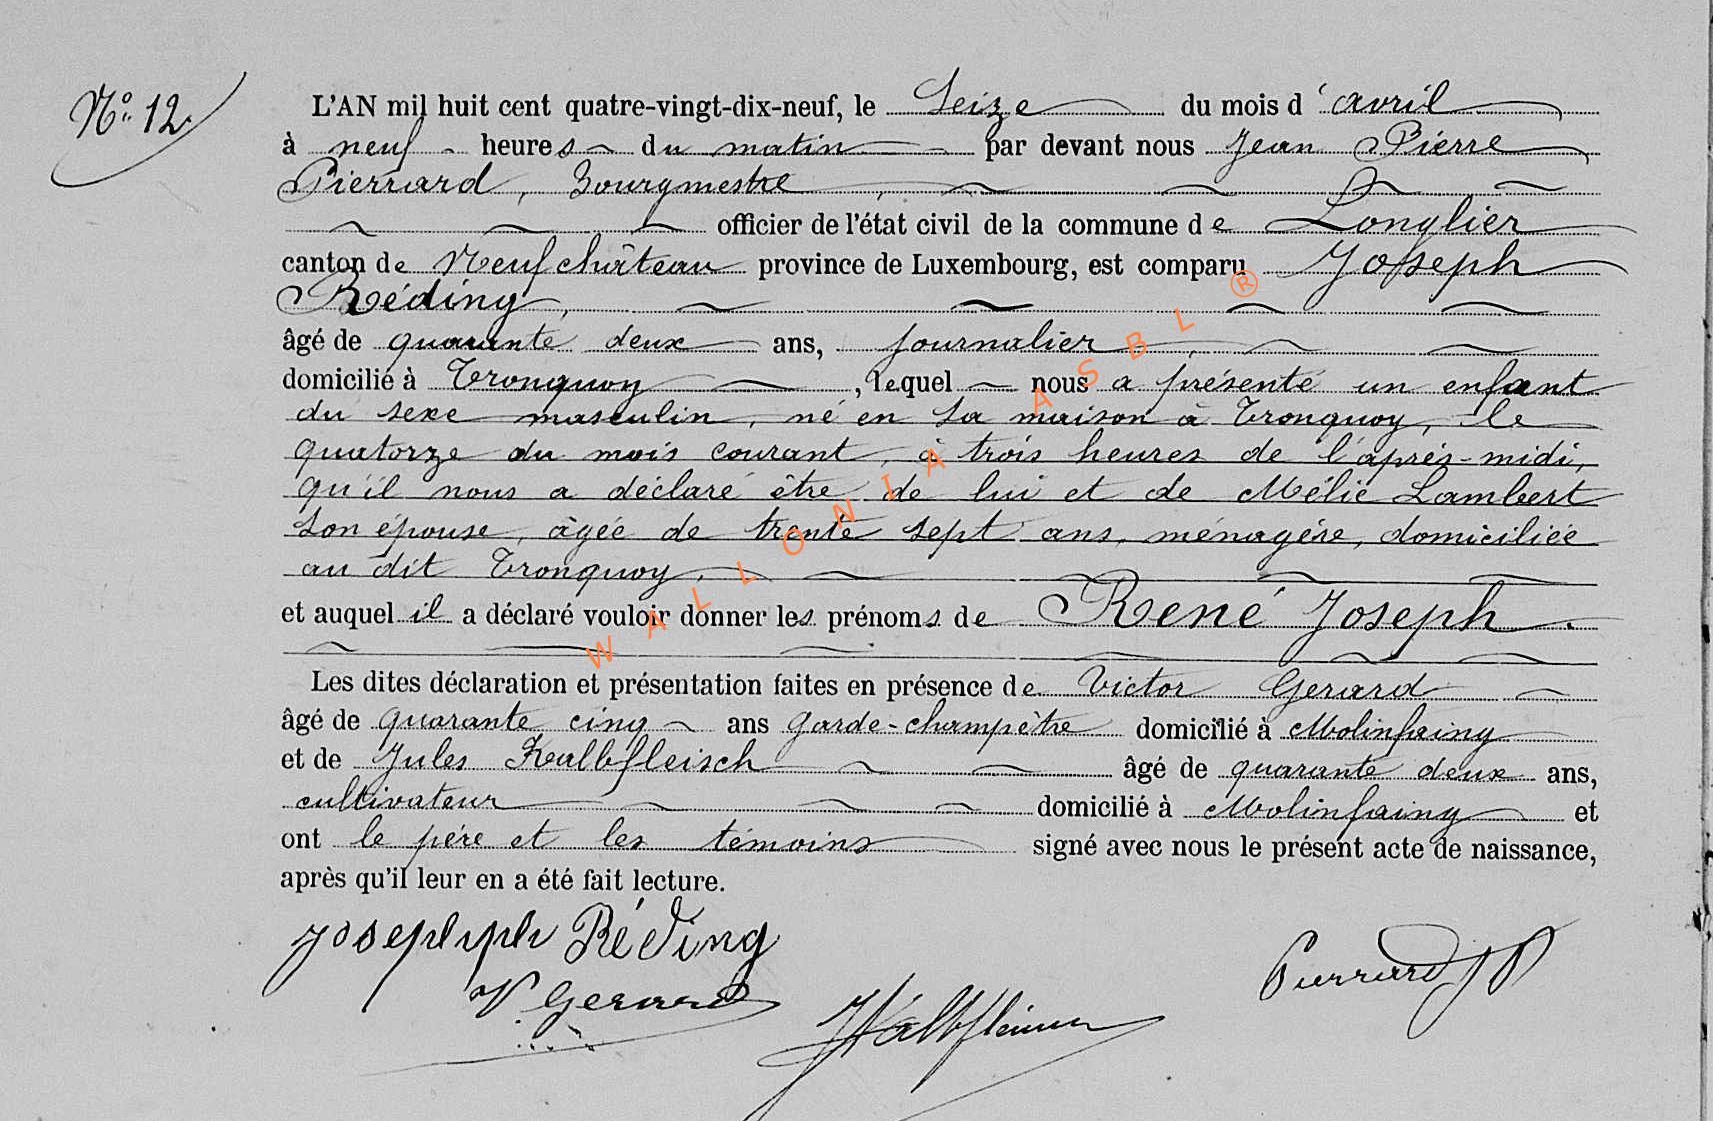 N° 12.
L'AN mil huit cent quatre-vingt-dix-neuf, le Seize du mois d'avril
à neuf heures du matin par devant nous Jean Pierre
Pierrard, Bourgmestre,
officier de l'état civil de la commune de Longlier
canton de Neufchâteau province de Luxembourg, est comparu Joseph
Réding,
âgé de quarante deux ans, journalier,
domicilié à Tronquoy, lequel nous a présenté un enfant
du sexe masculin, né en sa maison à Tronquoy, le
quatorze du mois courant, à trois heures de l'après-midi,
qu'il nous a déclaré être de lui et de Mélie Lambert
son épouse, âgée de trente sept ans, ménagère, domiciliée
au dit Tronquoy,
et auquel il a déclaré vouloir donner les prénoms de René Joseph.
Les dites déclaration et présentation faites en présence de Victor Gerard
âgé de quarante cinq ans garde-champêtre domicilié à Molinfaing
et de Jules Kalbfleisch âgé de quarante deux ans,
cultivateur domicilié à Molinfaing et
ont le père et les témoins signé avec nous le présent acte de naissance,
après qu'il leur en a été fait lecture.
Josephph Réding
V. Gerard
Pierrard JP
WALLONIA ASBL ®